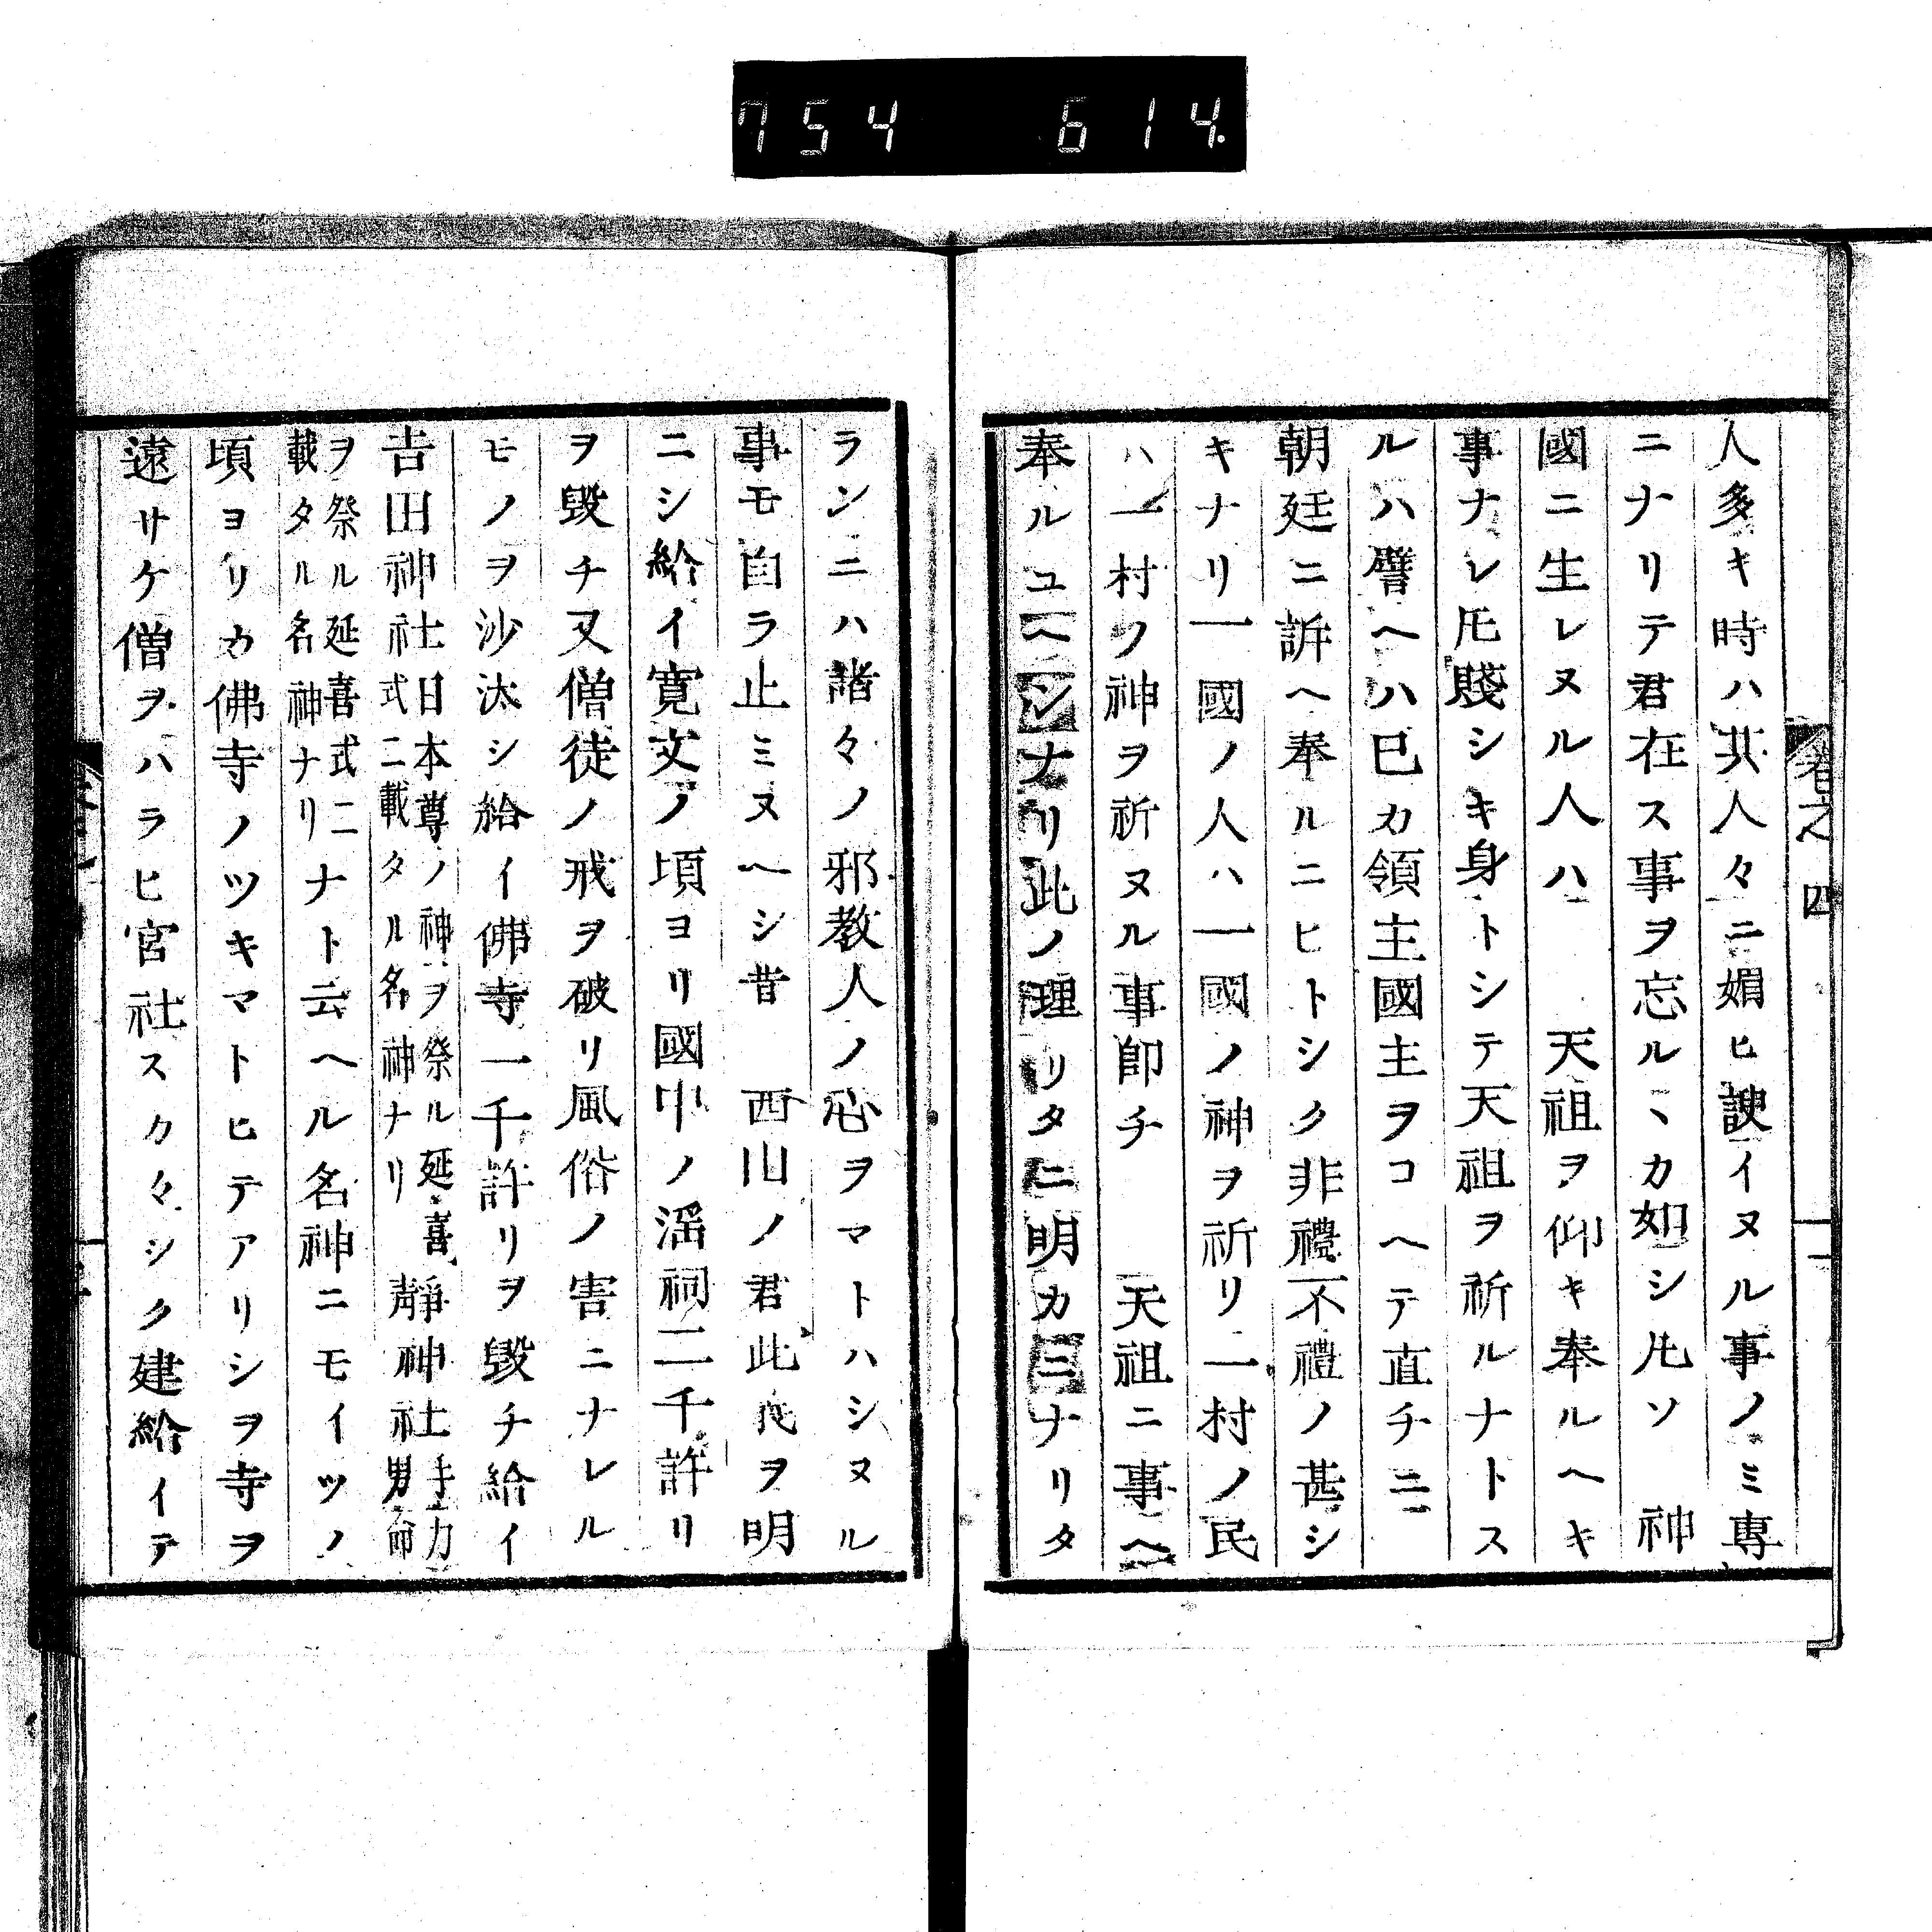 754 614.
卷之四
一
人多キ時ハ其人々ニ媚ヒ諛イヌル事ノミ專
ニナリテ君在ス事ヲ忘ルヽカ如シ凡ソ 神
國ニ生レヌル人ハ 天祖ヲ仰キ奉ルヘキ
事ナレ𪜈賤シキ身トシテ天祖ヲ祈ルナトス
ルハ譬ヘハ已カ領主國主ヲコヘテ直チニ
朝廷ニ訴ヘ奉ルニヒトシク非禮不禮ノ甚シ
キナリ一國ノ人ハ一國ノ神ヲ祈リ一村ノ民
ハ一村ノ神ヲ祈ヌル事卽チ 天祖ニ事ヘ
奉ルユヘンナリ此ノ理リタニ明カニナリタ
ランニハ諸々ノ邪教人ノ心ヲマトハシヌル
事モ自ラ止ミヌヘシ昔 西山ノ君此ヲ明
ニシ給イ寛文ノ頃ヨリ國中ノ淫祠二千許リ
ヲ毀チ又僧徒ノ戒ヲ破リ風俗ノ害ニナレル
モノヲ沙汰シ給イ佛寺一千許リヲ毀チ給イ
吉田神社日本尊ノ神ヲ祭ル延喜式ニ載タル名神ナリ 靜神社手力男命
ヲ祭ル延喜式ニ載タル名神ナリナト云ヘル名神ニモイツノ
頃ヨリカ佛寺ノツキマトヒテアリシヲ寺ヲ
遠サケ僧ヲハラヒ宮社スカ々シク建給イテ